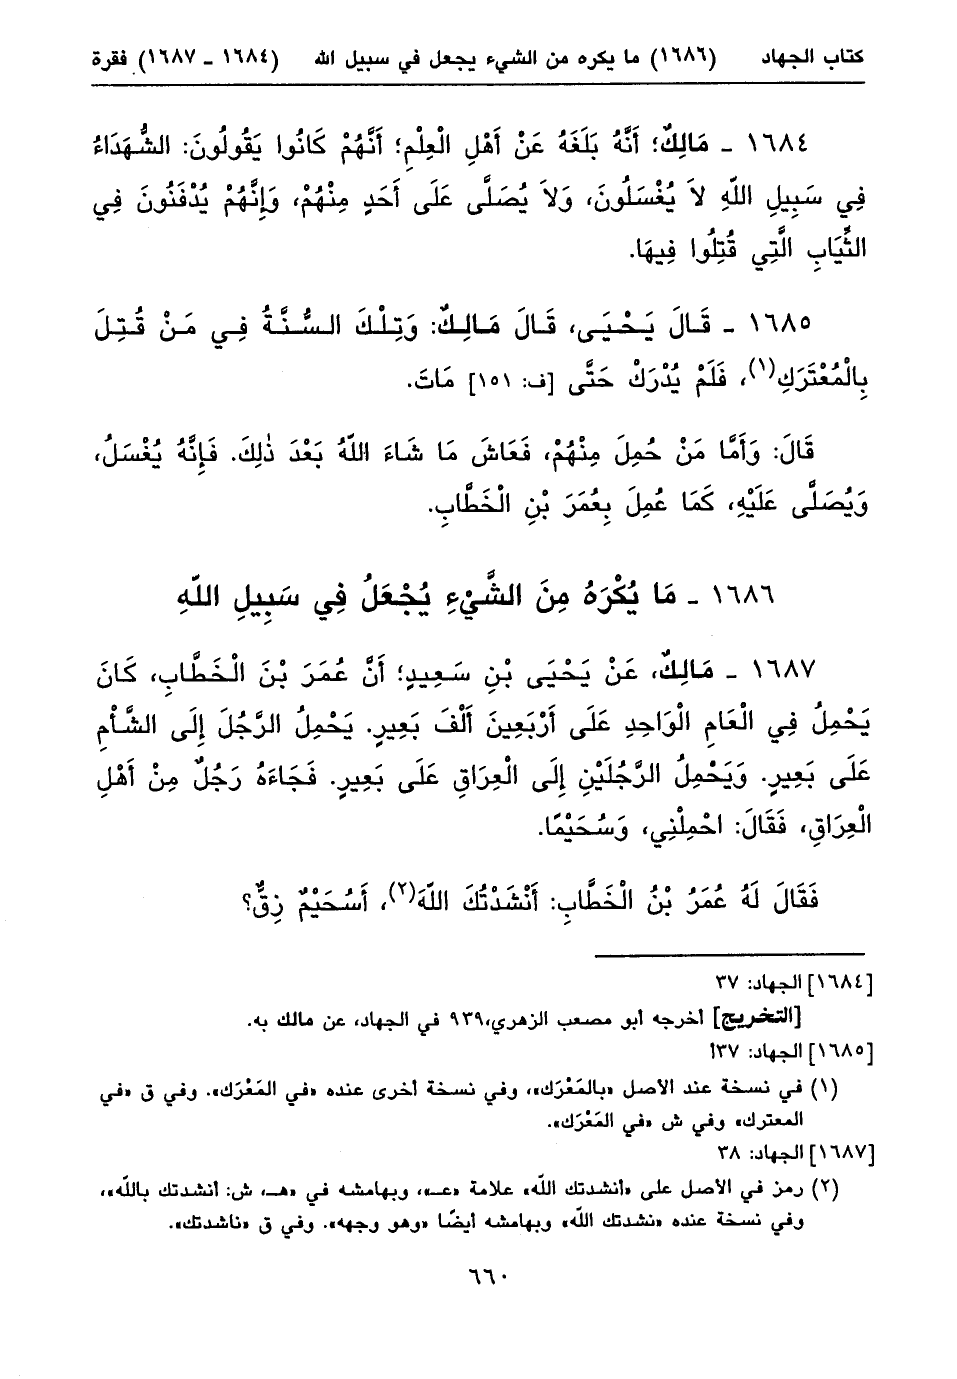 كتاب الجهاد (١٦٨٦) ما يكره من الشيء يجعل في سبيل الله (١٦٨٤ ـ ١٦٨٧) فقرة
١٦٨٤ ـ مَالِكٌ؛ أَنَّهُ بَلَغَهُ عَنْ أَهْلِ الْعِلْمِ؛ أَنَّهُمْ كَانُوا يَقُولُونَ: الشُّهَدَاءُ
فِي سَبِيلِ اللَّهِ لاَ يُغْسَلُونَ، وَلاَ يُصَلَّى عَلَى أَحَدٍ مِنْهُمْ، وَإِنَّهُمْ يُدْفَنُونَ فِي
الثِّيَابِ الَّتِي قُتِلُوا فِيهَا.
١٦٨٥ ـ قَالَ يَحْيَى، قَالَ مَالِكٌ: وَتِلْكَ السُّنَّةُ فِي مَنْ قُتِلَ
بِالْمُعْتَرَكِ(١)، فَلَمْ يُدْرَكْ حَتَّى [ف: ١٥١] مَاتَ.
قَالَ: وَأَمَّا مَنْ حُمِلَ مِنْهُمْ، فَعَاشَ مَا شَاءَ اللَّهُ بَعْدَ ذٰلِكَ. فَإِنَّهُ يُغْسَلُ،
وَيُصَلَّى عَلَيْهِ، كَمَا عُمِلَ بِعُمَرَ بْنِ الْخَطَّابِ.
١٦٨٦ ـ مَا يُكْرَهُ مِنَ الشَّيْءِ يُجْعَلُ فِي سَبِيلِ اللَّهِ
١٦٨٧ ـ مَالِكٌ، عَنْ يَحْيَى بْنِ سَعِيدٍ؛ أَنَّ عُمَرَ بْنَ الْخَطَّابِ، كَانَ
يَحْمِلُ فِي الْعَامِ الْوَاحِدِ عَلَى أَرْبَعِينَ أَلْفَ بَعِيرٍ. يَحْمِلُ الرَّجُلَ إِلَى الشَّأْمِ
عَلَى بَعِيرٍ. وَيَحْمِلُ الرَّجُلَيْنِ إِلَى الْعِرَاقِ عَلَى بَعِيرٍ. فَجَاءَهُ رَجُلٌ مِنْ أَهْلِ
الْعِرَاقِ، فَقَالَ: احْمِلْنِي، وَسُحَيْمًا.
فَقَالَ لَهُ عُمَرُ بْنُ الْخَطَّابِ: أَنْشَدْتُكَ اللَّهَ(٢)، أَسُحَيْمٌ زِقٌّ؟
[١٦٨٤] الجهاد: ٣٧
[التخريج] أخرجه أبو مصعب الزهري، ٩٣٩ في الجهاد، عن مالك به.
[١٦٨٥] الجهاد: ٣٧أ
(١) في نسخة عند الأصل «بالمَعْرَك»، وفي نسخة أخرى عنده «في المَعْرَك». وفي ق «في
المعترك» وفي ش «في المَعْرَك».
[١٦٨٧] الجهاد: ٣٨
(٢) رمز في الأصل على «أنشدتك الله» علامة «عـ»، وبهامشه في «هـ، ش: أنشدتك بالله»،
وفي نسخة عنده «نشدتك الله» وبهامشه أيضًا «وهو وجهه». وفي ق «ناشدتك».
٦٦٠